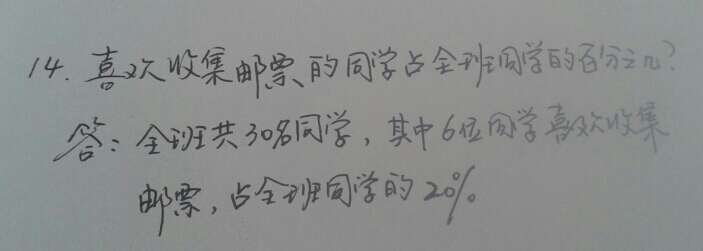 14. 喜欢收集邮票的同学占全班同学的百分之几?
答: 全班共30名同学, 其中6位同学喜欢收集
邮票, 占全班同学的20%.